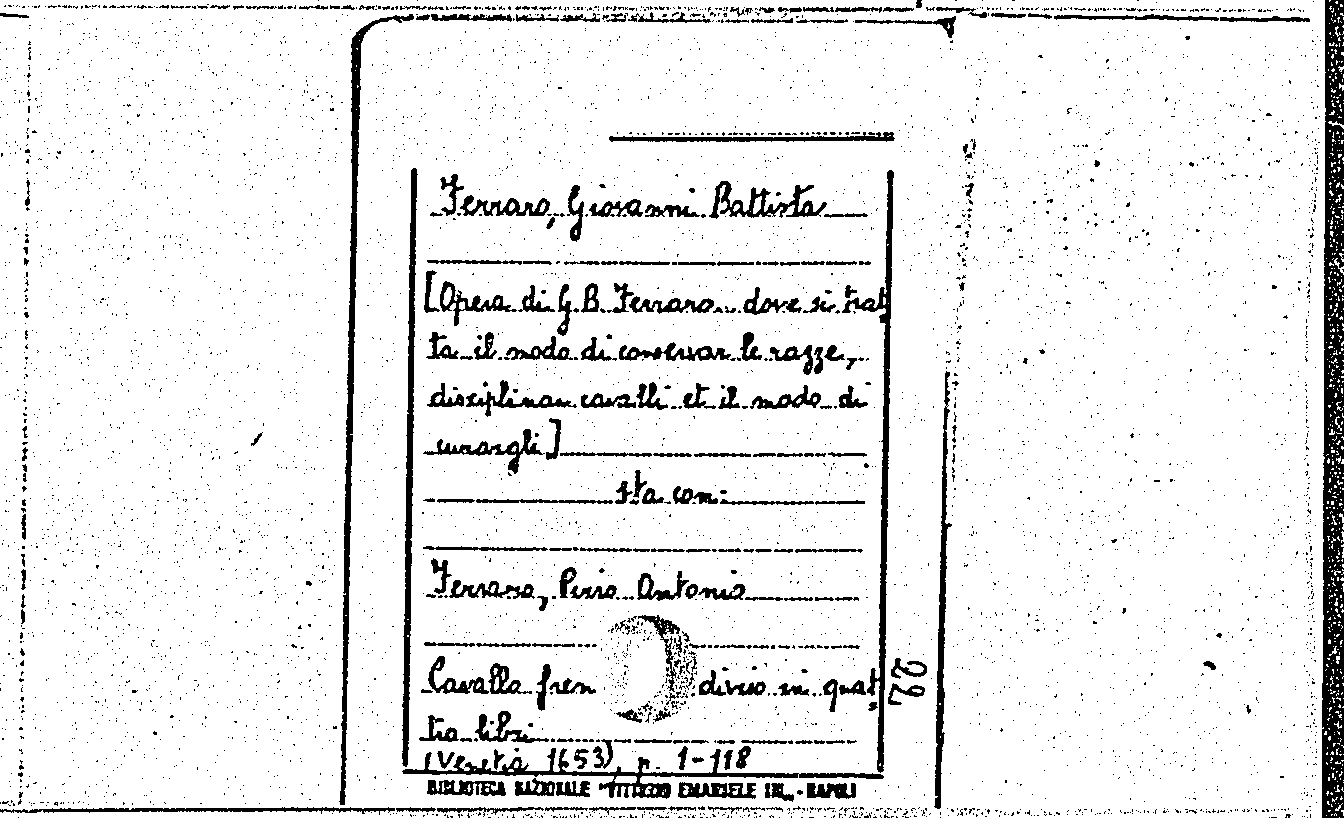 Ferraro, Giovanni Battista
[Opera di G. B. Ferraro... dove si trat
ta il modo di conservar le razze,
disciplinar cavalli et il modo di
curargli]
sta con:
Ferraro, Pirro Antonio
Cavallo fren diviso in quat
tro libri
(Venetia 1653), p. 1-118
22
BIBLIOTECA NAZIONALE "VITTORIO EMANUELE III" - NAPOLI